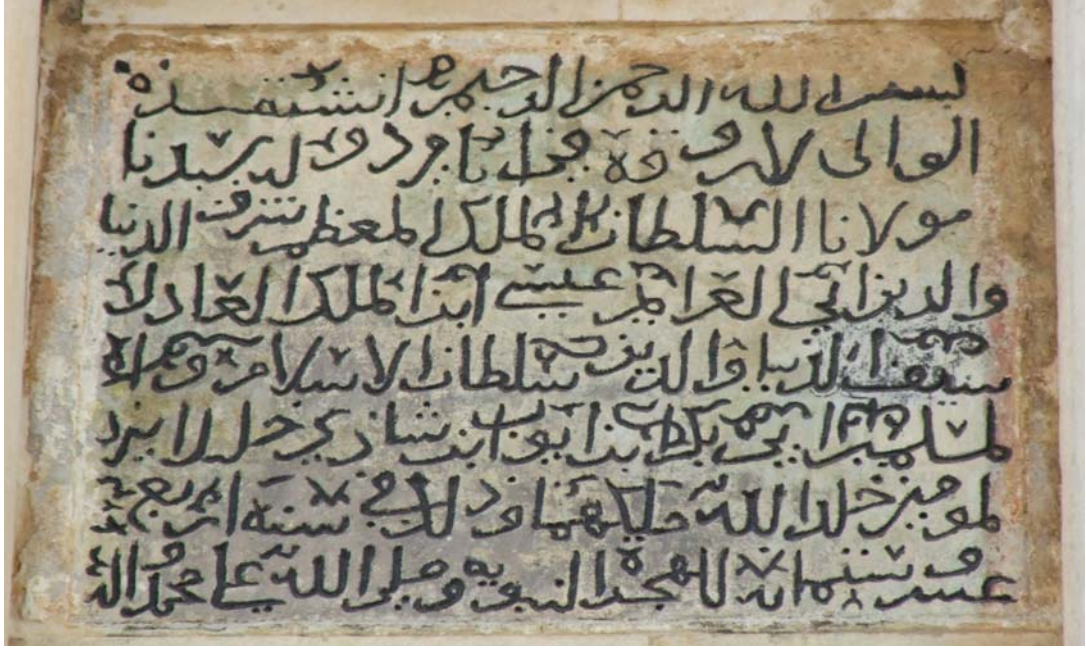 بسم الله الرحمن الرحيم
في ايام دولة سيدنا
مولانا السلطان الملك المعظم شرف الدنيا
والدين ابي العزائم عيسى ابن الملك العادل
سيف الدنيا والدين سلطان الاسلام وا
لمسلمين ابي بكر بن ايوب ابن شادي خليل امير ا
لمومنين خلد الله ملكهما وذلك في سنة اربع
عشر وستمائة للهجرة النبوية وصلى الله على محمد واله